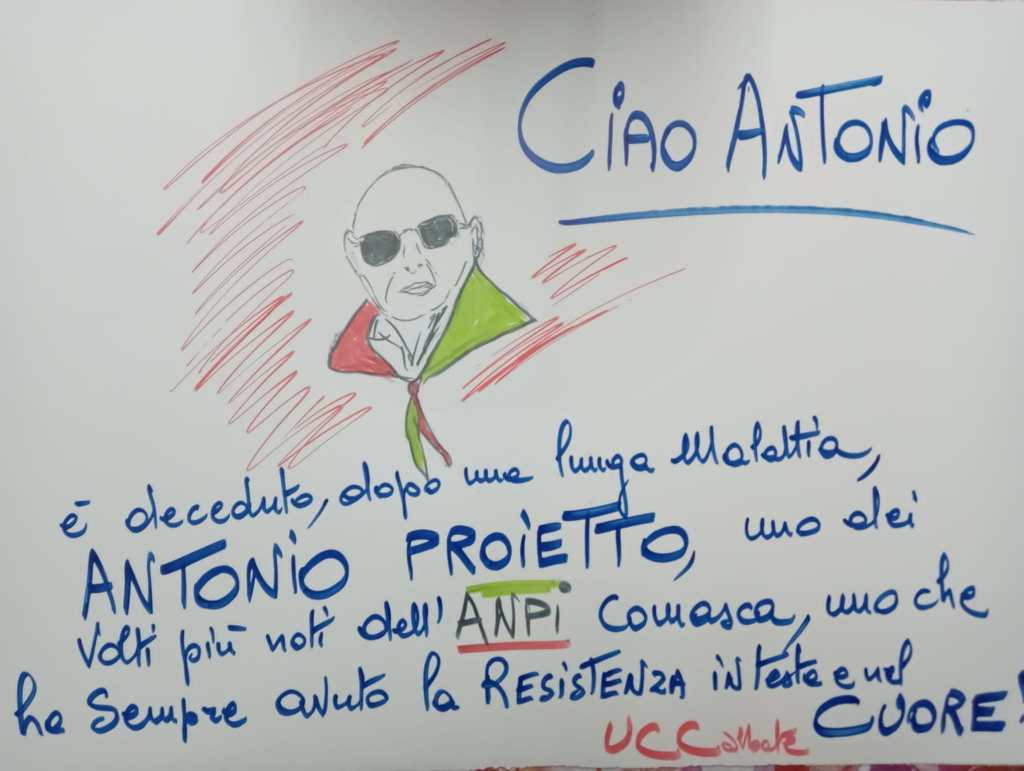 CIAO ANTONIO
è deceduto, dopo una lunga Malattia,
ANTONIO PROIETTO, uno dei
Volti più noti dell' ANPI Comasca, uno che
ha Sempre avuto la RESISTENZA in testa e nel
CUORE!
UCCalbate